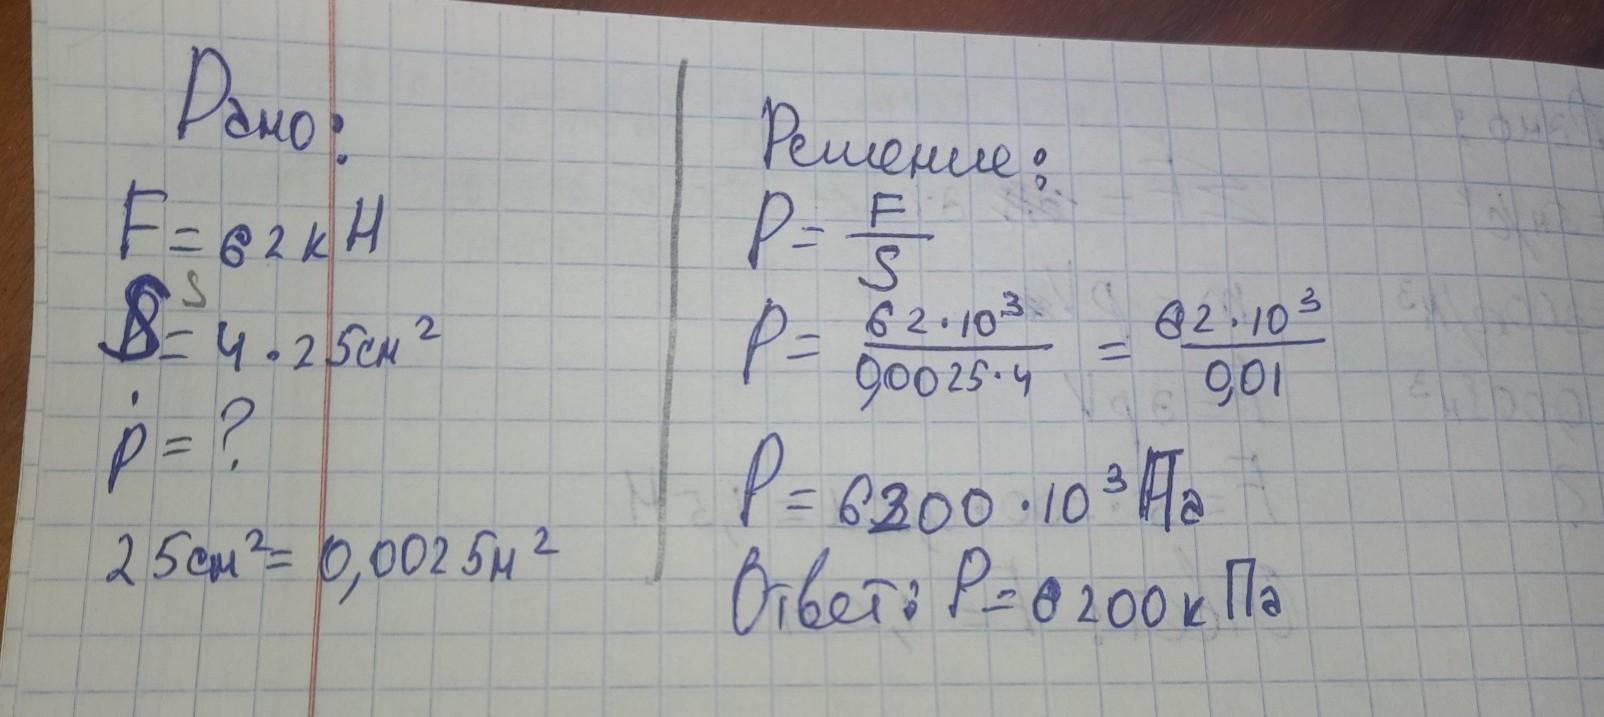 Дано:
F = 62 кН
S = 4 · 25 см²
p = ?
25 см² = 0,0025 м²
Решение:
P = F/S
P = 62 · 10³ / 0,0025 · 4 = 62 · 10³ / 0,01
P = 6200 · 10³ Па
Ответ: P = 6200 к Па